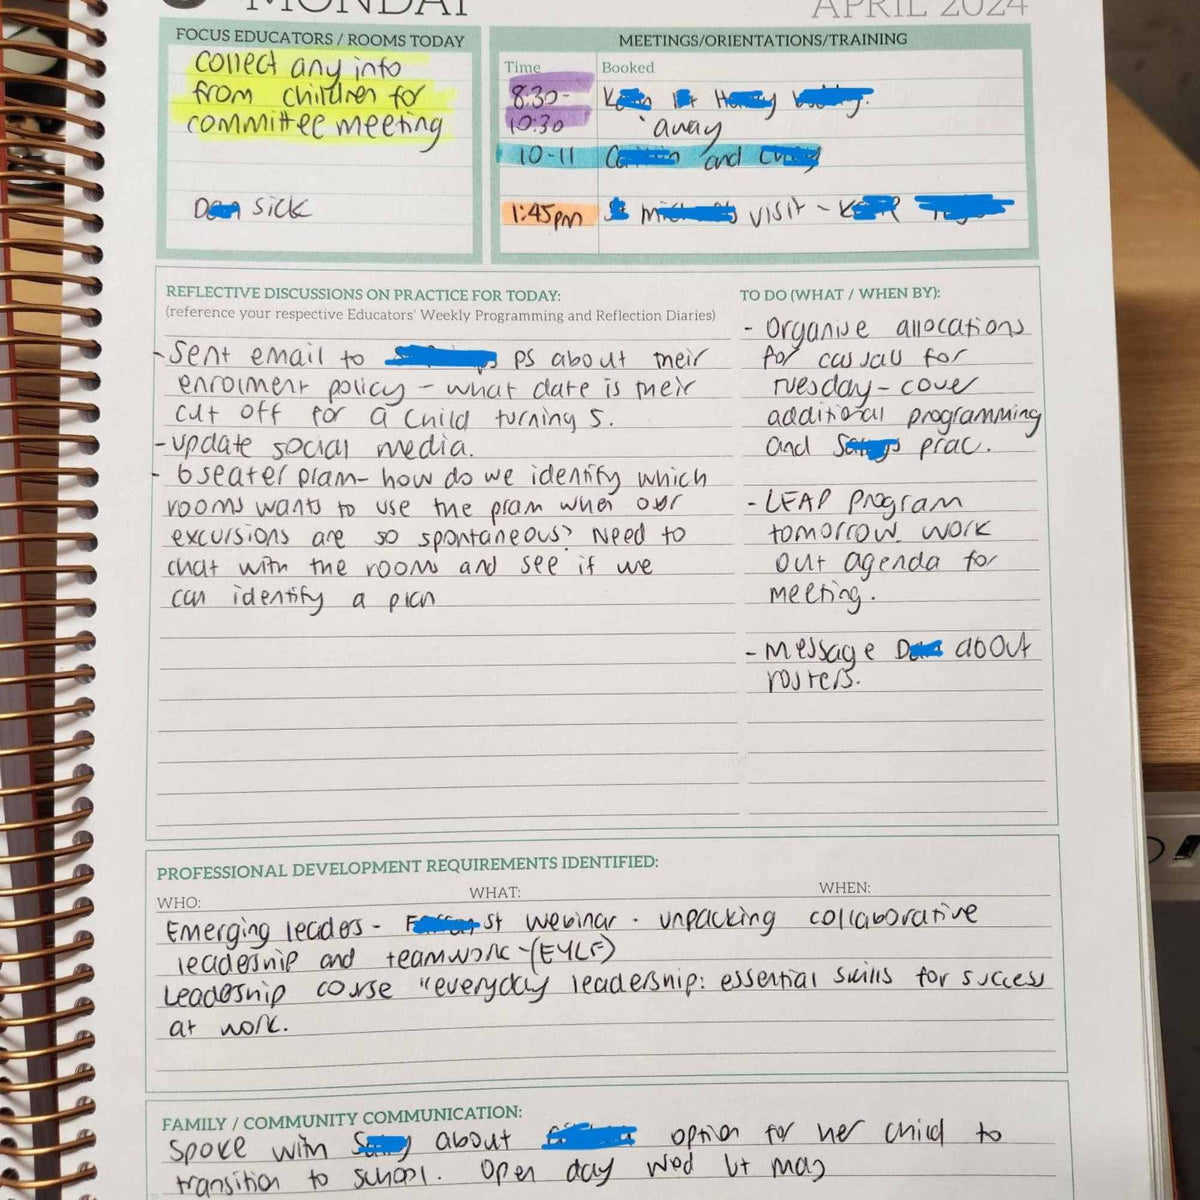 MONDAY
APRIL 2024
FOCUS EDUCATORS / ROOMS TODAY
collect any info
from children for
committee meeting
sick
MEETINGS/ORIENTATIONS/TRAINING
Time Booked
8:30-
10:30 away
10-11 and
1:45pm visit -
REFLECTIVE DISCUSSIONS ON PRACTICE FOR TODAY:
(reference your respective Educators' Weekly Programming and Reflection Diaries)
- Sent email to PS about their
enrolment policy - what date is their
cut off for a child turning 5.
- update social media.
- 6 seater pram - how do we identify which
rooms wants to use the pram when our
excursions are so spontaneous? Need to
chat with the rooms and see if we
can identify a plan
TO DO (WHAT / WHEN BY):
- Organise allocations
for casual for
Tuesday - cover
additional programming
and prac.
- LEAP program
tomorrow. work
out agenda for
meeting.
- Message about
rosters.
PROFESSIONAL DEVELOPMENT REQUIREMENTS IDENTIFIED:
WHO: WHAT: WHEN:
Emerging leaders - st webinar - unpacking collaborative
leadership and teamwork - (EYLF)
Leadership course "everyday leadership: essential skills for success
at work.
FAMILY / COMMUNITY COMMUNICATION:
Spoke with about option for her child to
transition to school. Open day Wed 1st May